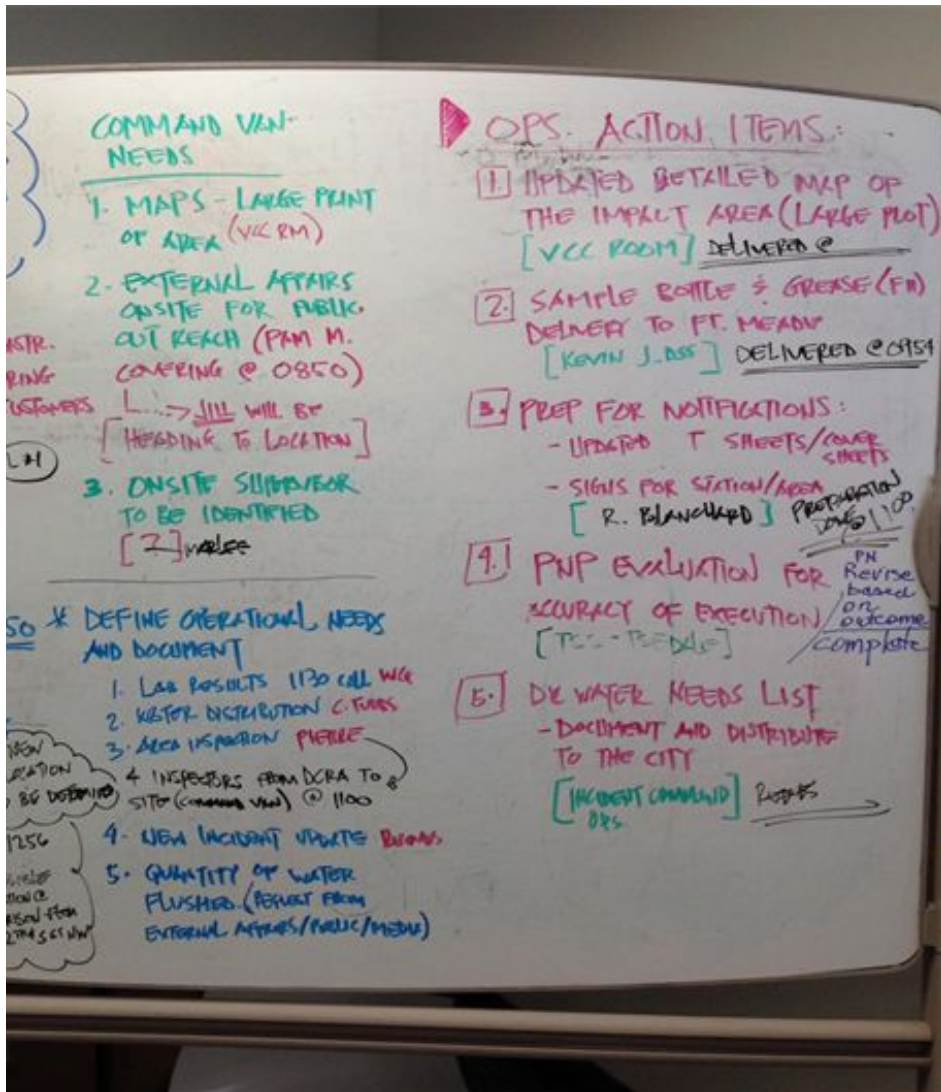 COMMAND VAN-
NEEDS
1. MAPS - LARGE PRINT
OF AREA (VCC RM)
2. EXTERNAL AFFAIRS
ONSITE FOR PUBLIC
OUT REACH (PAM M.
COVERING @ 0850)
JILL WILL BE
[HEADING TO LOCATION]
3. ONSITE SUPERVISOR
TO BE IDENTIFIED
[?] MARLEE
* DEFINE OPERATIONAL NEEDS
AND DOCUMENT
1. LAB RESULTS 1130 CALL
2. WATER DISTRIBUTION C. TUBBS
3. AREA INSPECTION PIERRE
4 INSPECTORS FROM DCRA TO
SITE (COMMAND VAN) @ 1100
4. NEW INCIDENT UPDATE
5. QUANTITY OF WATER
FLUSHED (REQUEST FROM
EXTERNAL AFFAIRS/PUBLIC/MEDIA)
RING
CUSTOMERS
50
NEW
LOCATION
BE DEFINED
1256
OPS. ACTION ITEMS:
1. UPDATED DETAILED MAP OF
THE IMPACT AREA (LARGE PLOT)
[VCC ROOM] DELIVERED @
2. SAMPLE BOTTLE & GREASE (FH)
DELIVERY TO FT. MEADE
[KEVIN J. DSS] DELIVERED @ 0954
3. PREP FOR NOTIFICATIONS:
- UPDATED T SHEETS/COVER
SHEETS
- SIGNS FOR STATION/AREA
[R. BLANCHARD] PREPARATION
DONE @ 1100
4. PNP EVALUATION FOR
ACCURACY OF EXECUTION
PN
Revise
based
on
outcome
complete
5. DC WATER NEEDS LIST
- DOCUMENT AND DISTRIBUTE
TO THE CITY
[INCIDENT COMMAND
OPS.]